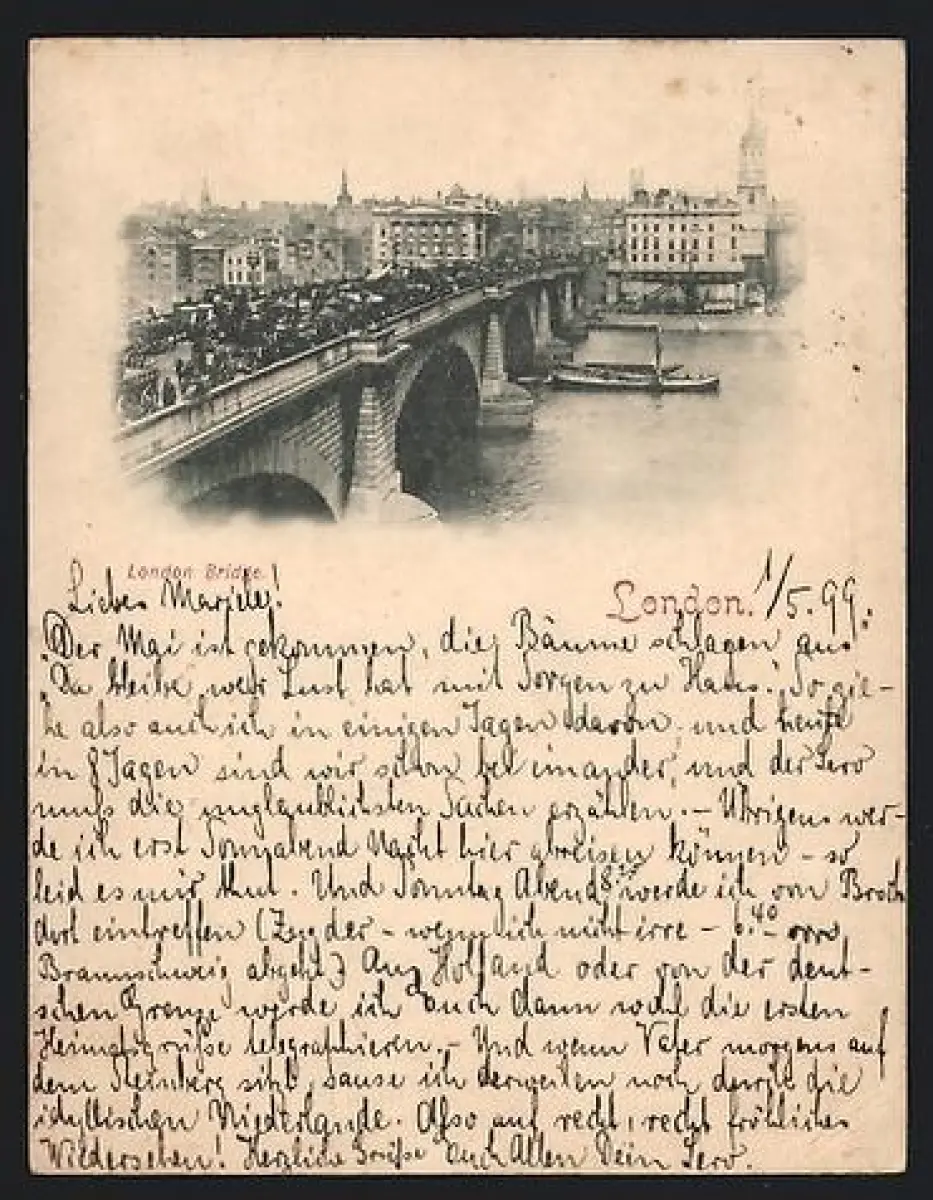 London Bridge.
London. 1/5.99.
Liebes !
"Der Mai ist gekommen, die Bäume schlagen aus
"Da bleibe, wer Lust hat mit Sorgen zu Haus." So zie-
he also auch ich in einigen Tagen davon, und heute
in 8 Tagen sind wir schon bei einander, und der Servo
muß die unglaublichsten Sachen erzählen. – Übrigens wer-
de ich erst Sonnabend Nacht hier abreisen können – so
leid es mir thut. Und Sonntag Abend werde ich von
dort eintreffen (Zug der – wenn ich nicht irre – 6.40
Braunschweig abgeht.) Aus Holland oder von der deut-
schen Grenze werde ich Euch dann wohl die ersten
Heimatsgrüße telegraphieren. – Und wenn Vater morgens auf
dem Steinberg sitzt, sause ich derweilen noch durch die
idyllischen Niederlande. Also auf recht, recht fröhliches
Wiedersehen! Herzliche Grüße Euch Allen Dein Servo.